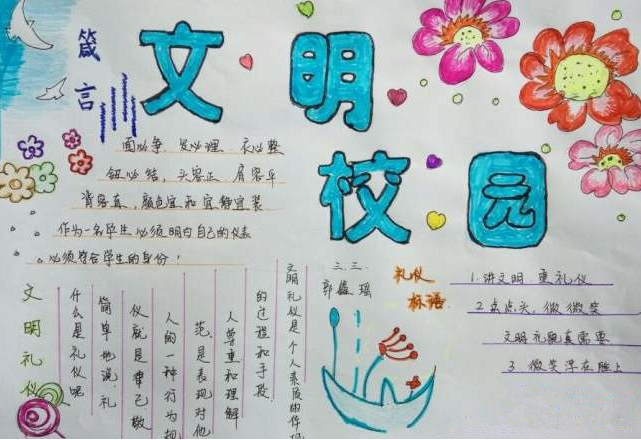 文明
校园
箴言
面必争 发必理 衣必整
钮必结，头容正，肩容平
背容直，颜色宜和宜静宜装
作为一名学生必须明白自己的仪表
必须符合学生的身份！
文明礼仪
什么是礼仪呢
简单地说，礼
仪就是律己敬
人的一种行为规
范，是表现对他
人尊重和理解
的过程和手段
文明礼仪是个人素质的体现
三.三.
郭 瑶
礼仪
标语：
1.讲文明 重礼仪
2.点点头，微微笑
文明礼貌真需要
3.微笑浮在脸上